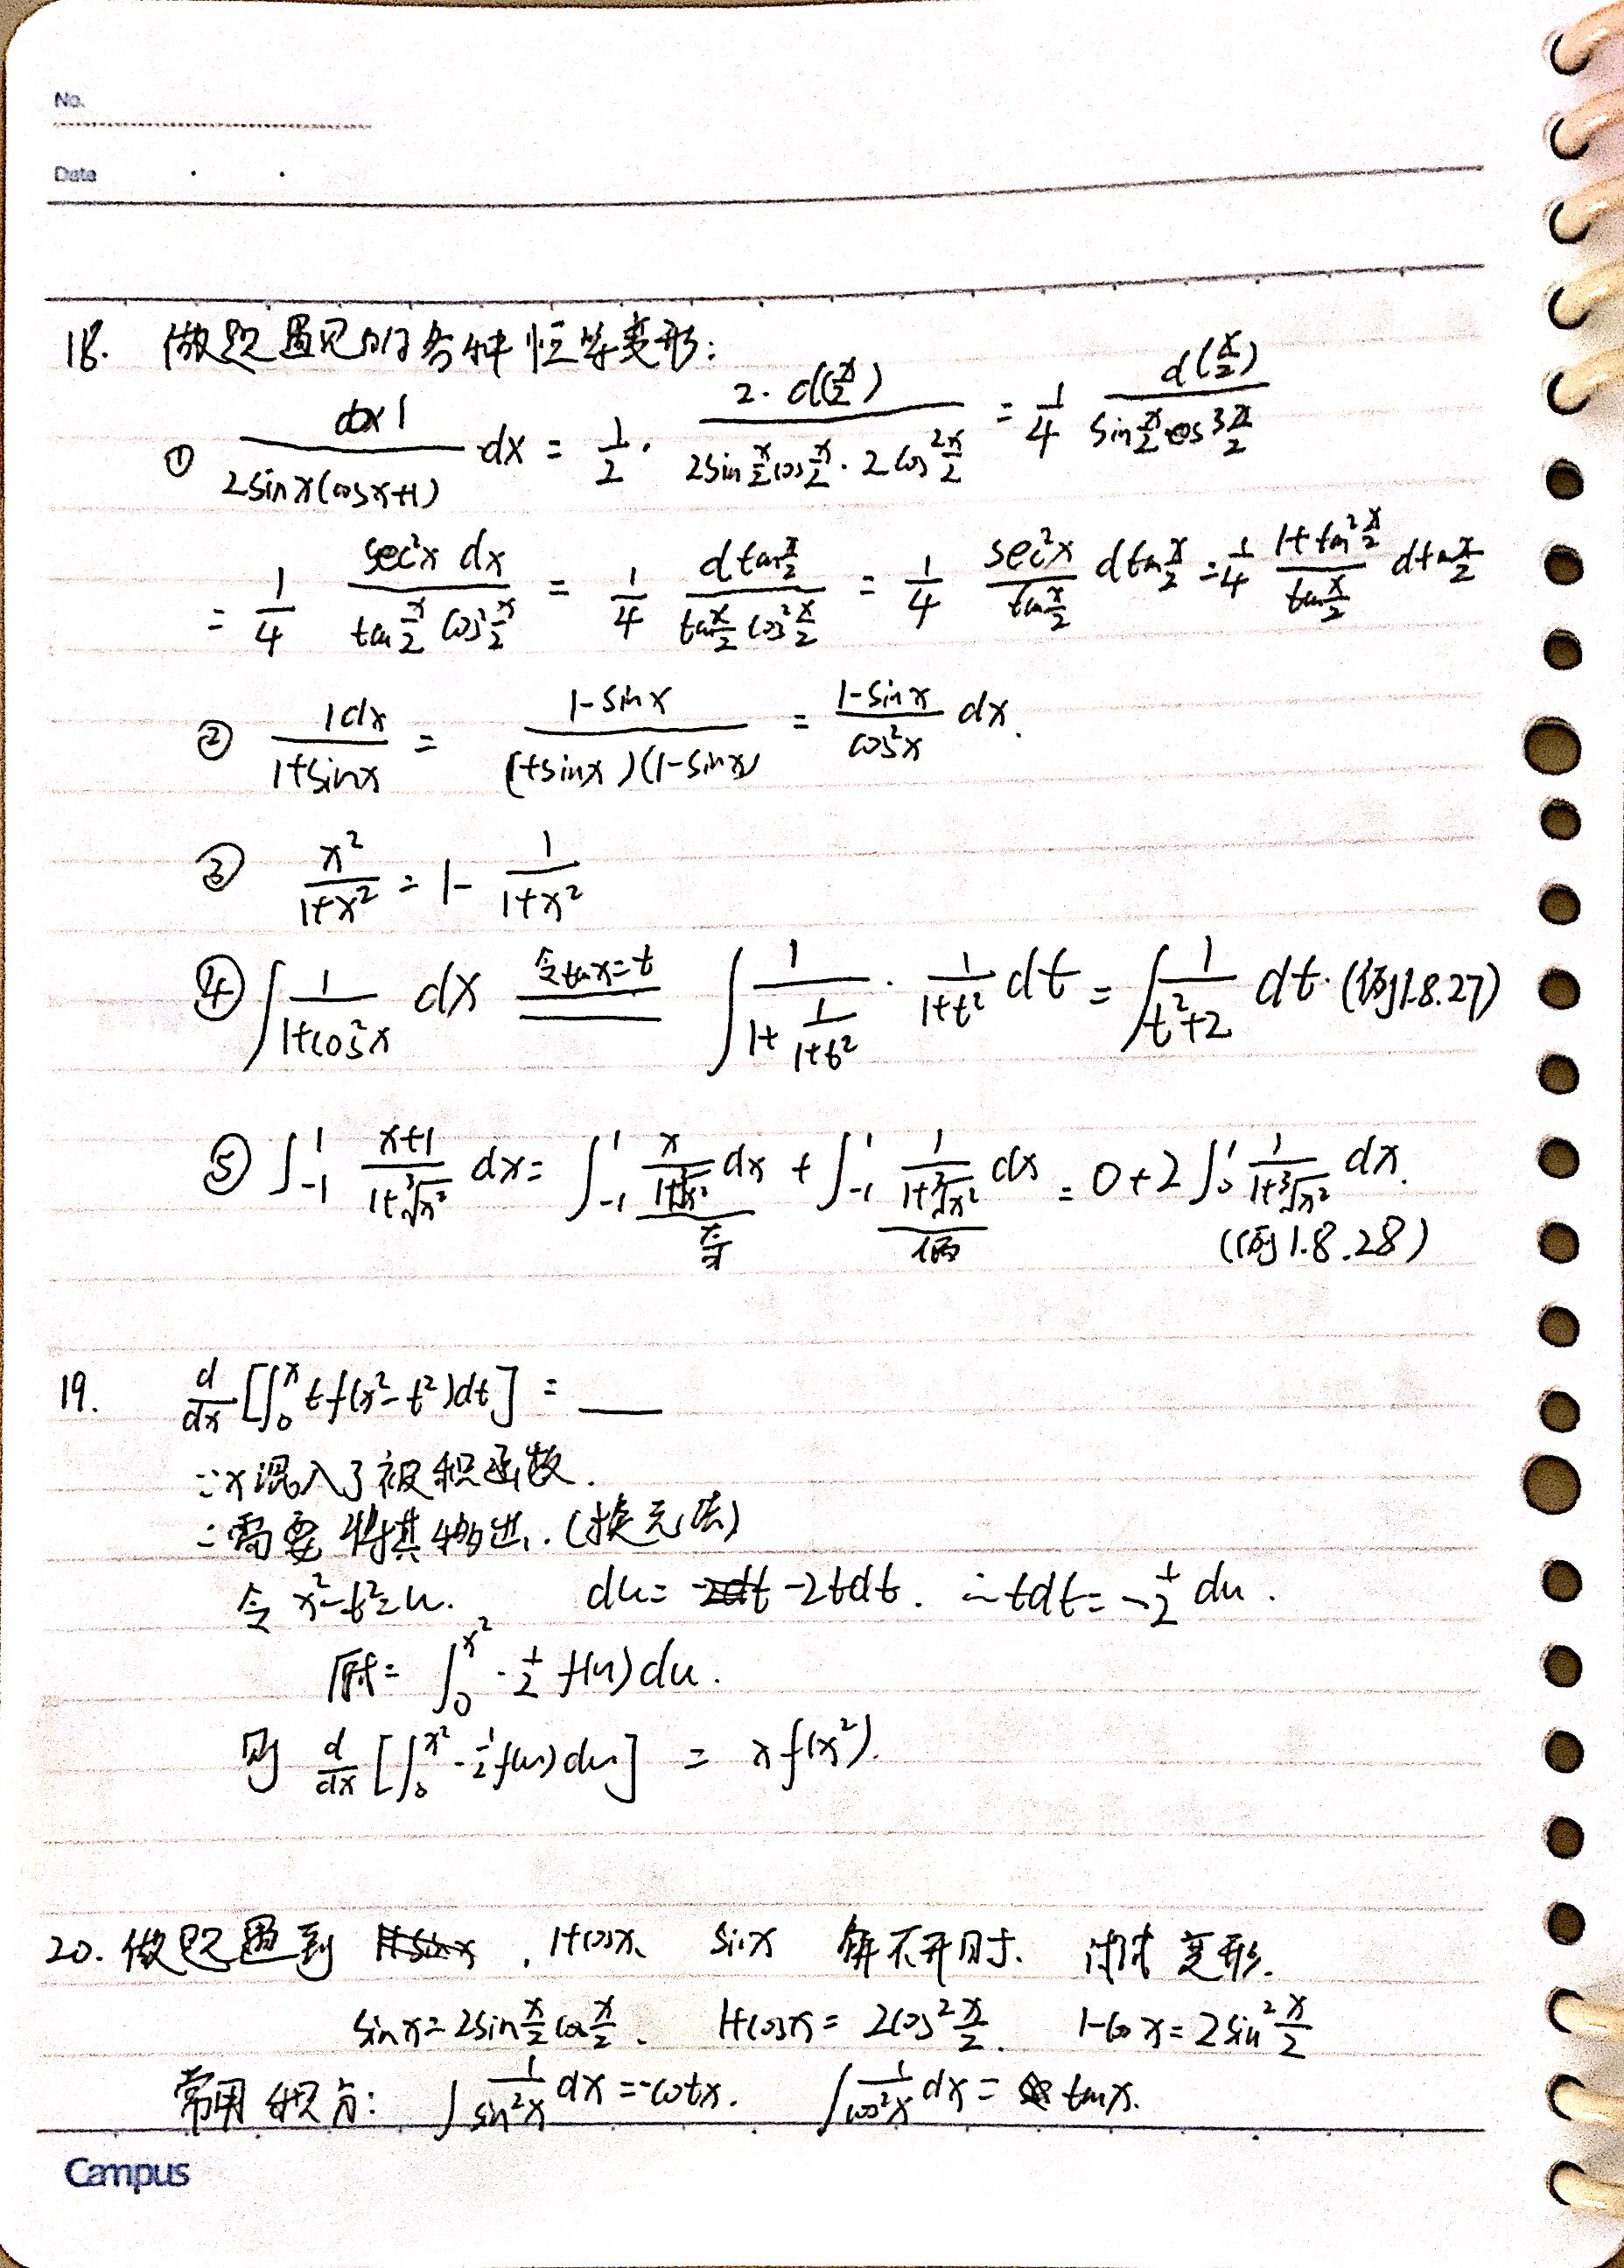 No.
Date
18. 做题遇见的各种恒等变形:
① \frac{1}{2sinx(cosx+1)} dx = \frac{1}{2} · \frac{2·d(\frac{x}{2})}{2sin\frac{x}{2}cos\frac{x}{2}·2cos^2\frac{x}{2}} = \frac{1}{4} \frac{d(\frac{x}{2})}{sin\frac{x}{2}cos^3\frac{x}{2}}
= \frac{1}{4} \frac{sec^2x dx}{tan\frac{x}{2}cos^2\frac{x}{2}} = \frac{1}{4} \frac{dtan\frac{x}{2}}{tan\frac{x}{2}cos^2\frac{x}{2}} = \frac{1}{4} \frac{sec^2x}{tan\frac{x}{2}} dtan\frac{x}{2} = \frac{1}{4} \frac{1+tan^2\frac{x}{2}}{tan\frac{x}{2}} dtan\frac{x}{2}
② \frac{1dx}{1+sinx} = \frac{1-sinx}{(1+sinx)(1-sinx)} = \frac{1-sinx}{cos^2x} dx.
③ \frac{x^2}{1+x^2} = 1- \frac{1}{1+x^2}
④ ∫\frac{1}{1+cos^2x} dx \xlongequal{令tanx=t} ∫\frac{1}{1+\frac{1}{1+t^2}} · \frac{1}{1+t^2} dt = ∫\frac{1}{t^2+2} dt. (例1.8.27)
⑤ ∫_{-1}^{1} \frac{x+1}{1+\sqrt[3]{x^2}} dx = ∫_{-1}^{1} \frac{x}{1+\sqrt[3]{x^2}} dx + ∫_{-1}^{1} \frac{1}{1+\sqrt[3]{x^2}} dx = 0+2∫_{0}^{1} \frac{1}{1+\sqrt[3]{x^2}} dx.
奇 偶 (例1.8.28)
19. \frac{d}{dx}[∫_{0}^{x} tf(x^2-t^2)dt] = ___
∵x混入了被积函数.
∴需要将其移出.(换元法)
令 x^2-t^2=u. du= -2tdt. ∴tdt= -\frac{1}{2} du.
原式= ∫_{0}^{x^2} -\frac{1}{2} f(u)du.
则 \frac{d}{dx}[∫_{0}^{x^2} -\frac{1}{2}f(u)du] = xf(x^2).
20. 做题遇到 , 1+cosx、 sinx 解不开时、 变形.
sinx=2sin\frac{x}{2}cos\frac{x}{2}、 1+cosx= 2cos^2\frac{x}{2}、 1-cosx=2sin^2\frac{x}{2}
常用积分: ∫\frac{1}{sin^2x} dx=-cotx. ∫\frac{1}{cos^2x} dx= tanx.
Campus